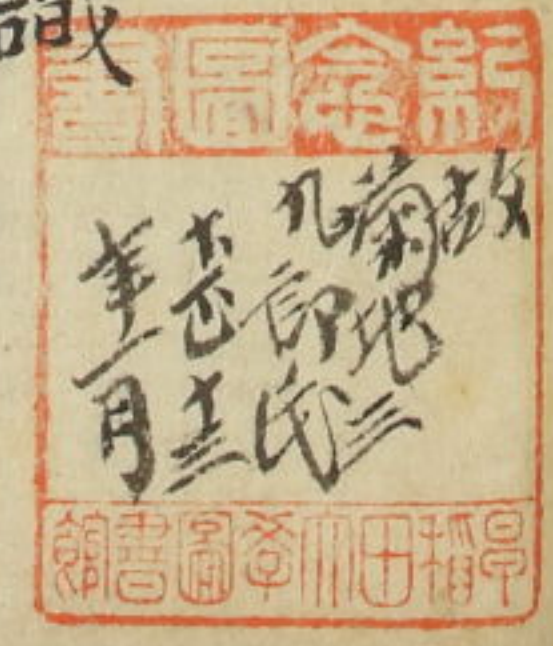 識
紀念圖書
故
菊地三
九郎氏
大正十三
年一月
早稻田大學圖書館